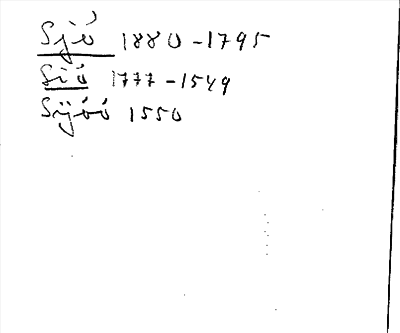 Sjó 1880-1795
Sió 1777-1549
Sÿóó 1550